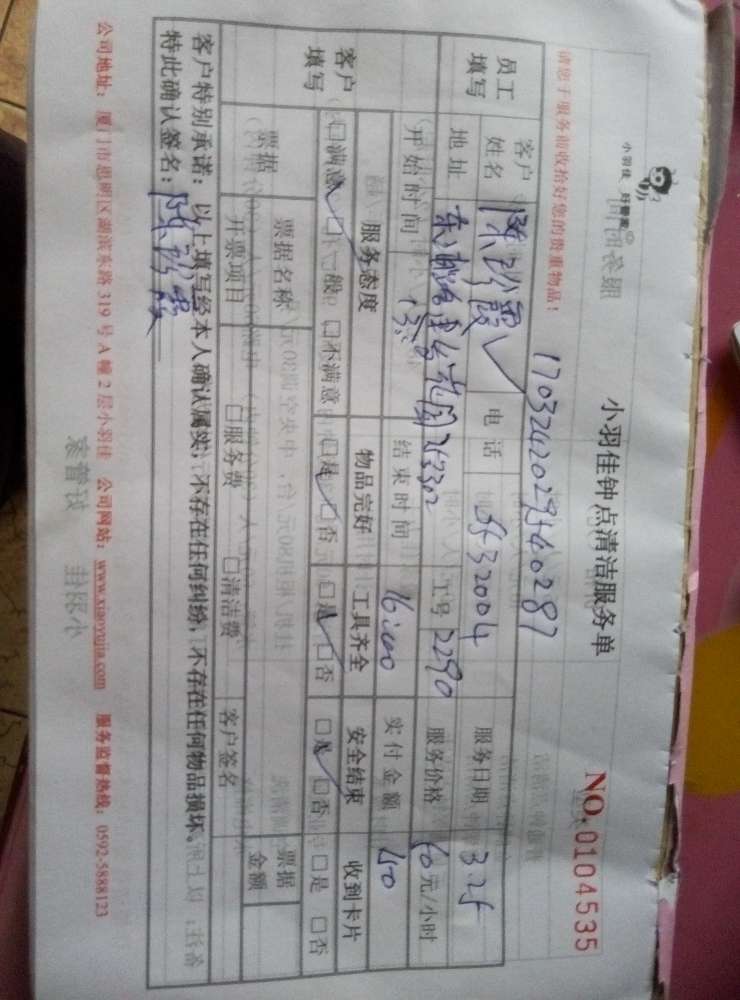 小羽佳 好管家
小羽佳钟点清洁服务单
NO.0104535
请您于服务前收拾好您的贵重物品!
员工填写
客户姓名
陈珍霞
电话
服务日期
3.25
地址
工号
2290
服务价格
元/小时
开始时间
结束时间
16:00
实付金额
客户填写
服务态度
物品完好
工具齐全
安全结束
收到卡片
□满意 □一般 □不满意
□是 □否
□是 □否
□是 □否
□是 □否
票据
票据名称
票据金额
开票项目
□服务费 □清洁费
客户签名
客户特别承诺:以上填写经本人确认属实,不存在任何纠纷,不存在任何物品损坏。
特此确认签名:陈珍霞
公司地址:厦门市思明区湖滨东路319号A幢2层小羽佳 公司网站:www.xiaoyujia.com 服务监督热线:0592-5888123